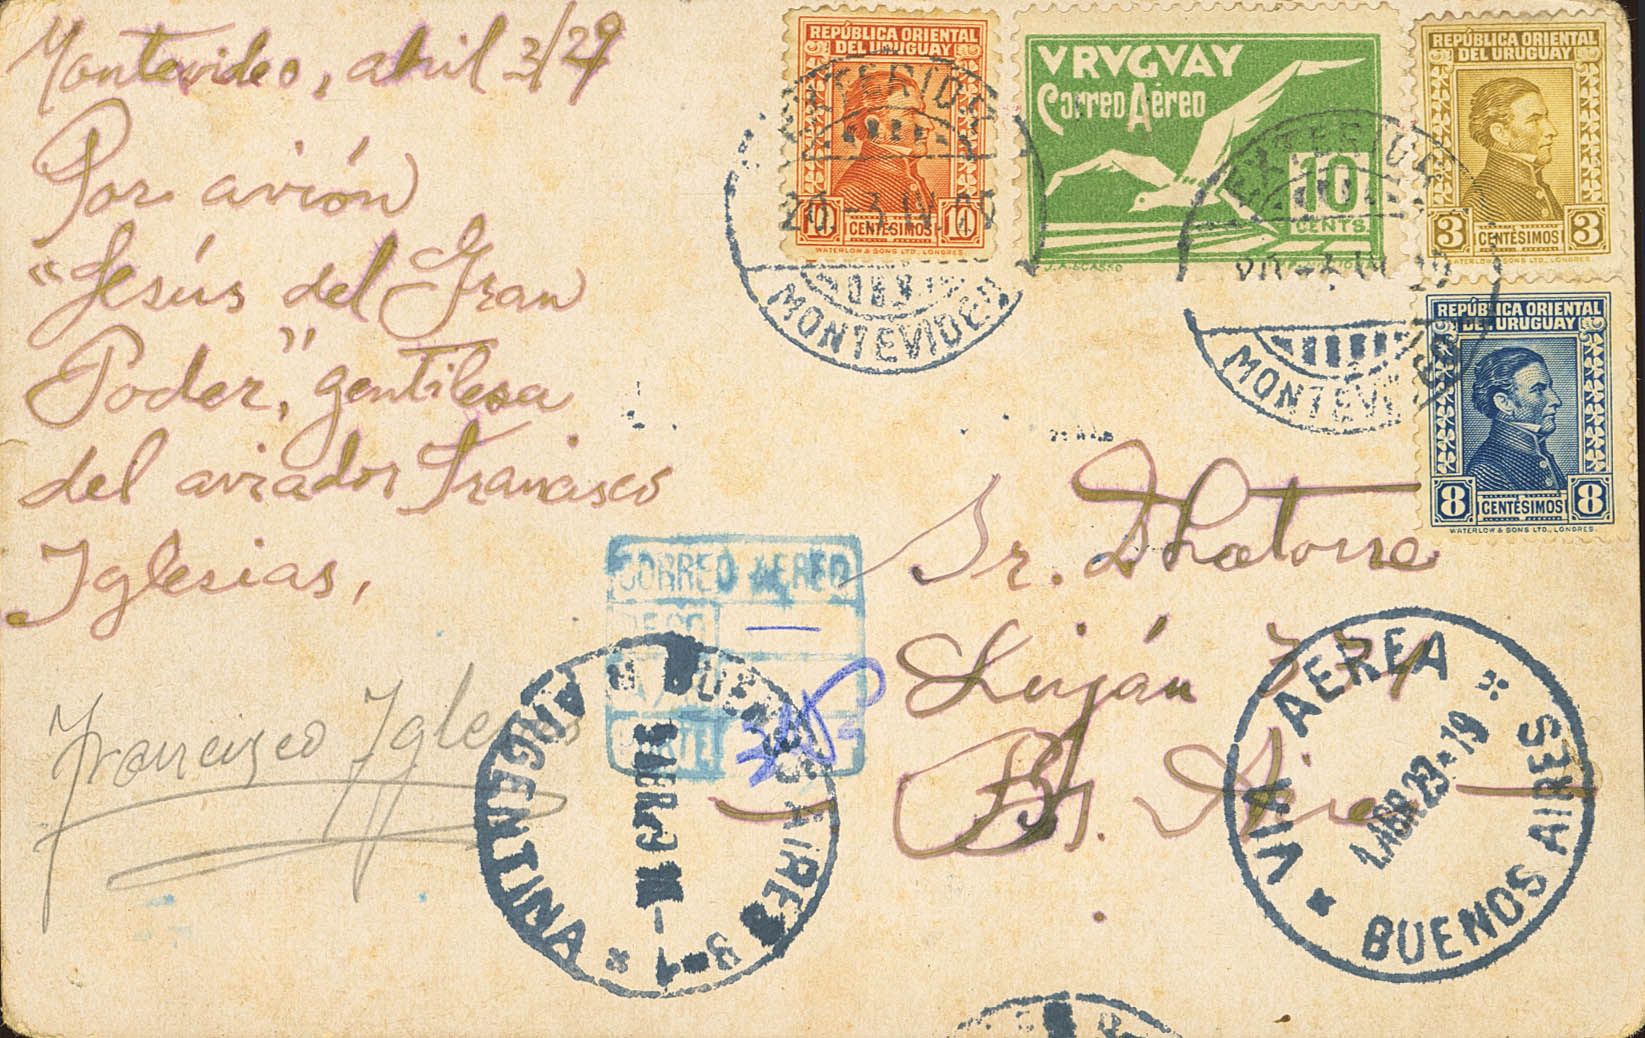 Montevideo, abril 3/29
Por avión
"Jesús del Gran
Poder," gentilesa
del aviador Francisco
Iglesias,
Francisco Iglesias
REPÚBLICA ORIENTAL
DEL URUGUAY
10 CENTÉSIMOS 10
WATERLOW & SONS LTD., LONDRES.
VRVGVAY
Correo Aéreo
10
CENTS.
REPÚBLICA ORIENTAL
DEL URUGUAY
3 CENTÉSIMOS 3
WATERLOW & SONS LTD., LONDRES.
REPÚBLICA ORIENTAL
DEL URUGUAY
8 CENTÉSIMOS 8
WATERLOW & SONS LTD., LONDRES.
EXTERIOR
20.-3.IV.29
MONTEVIDEO
EXTERIOR
MONTEVIDEO
CORREO AEREO
PESO
Sr.
Luján
Bs. Aires
BUENOS AIRES
ARGENTINA
VIA AEREA
BUENOS AIRES